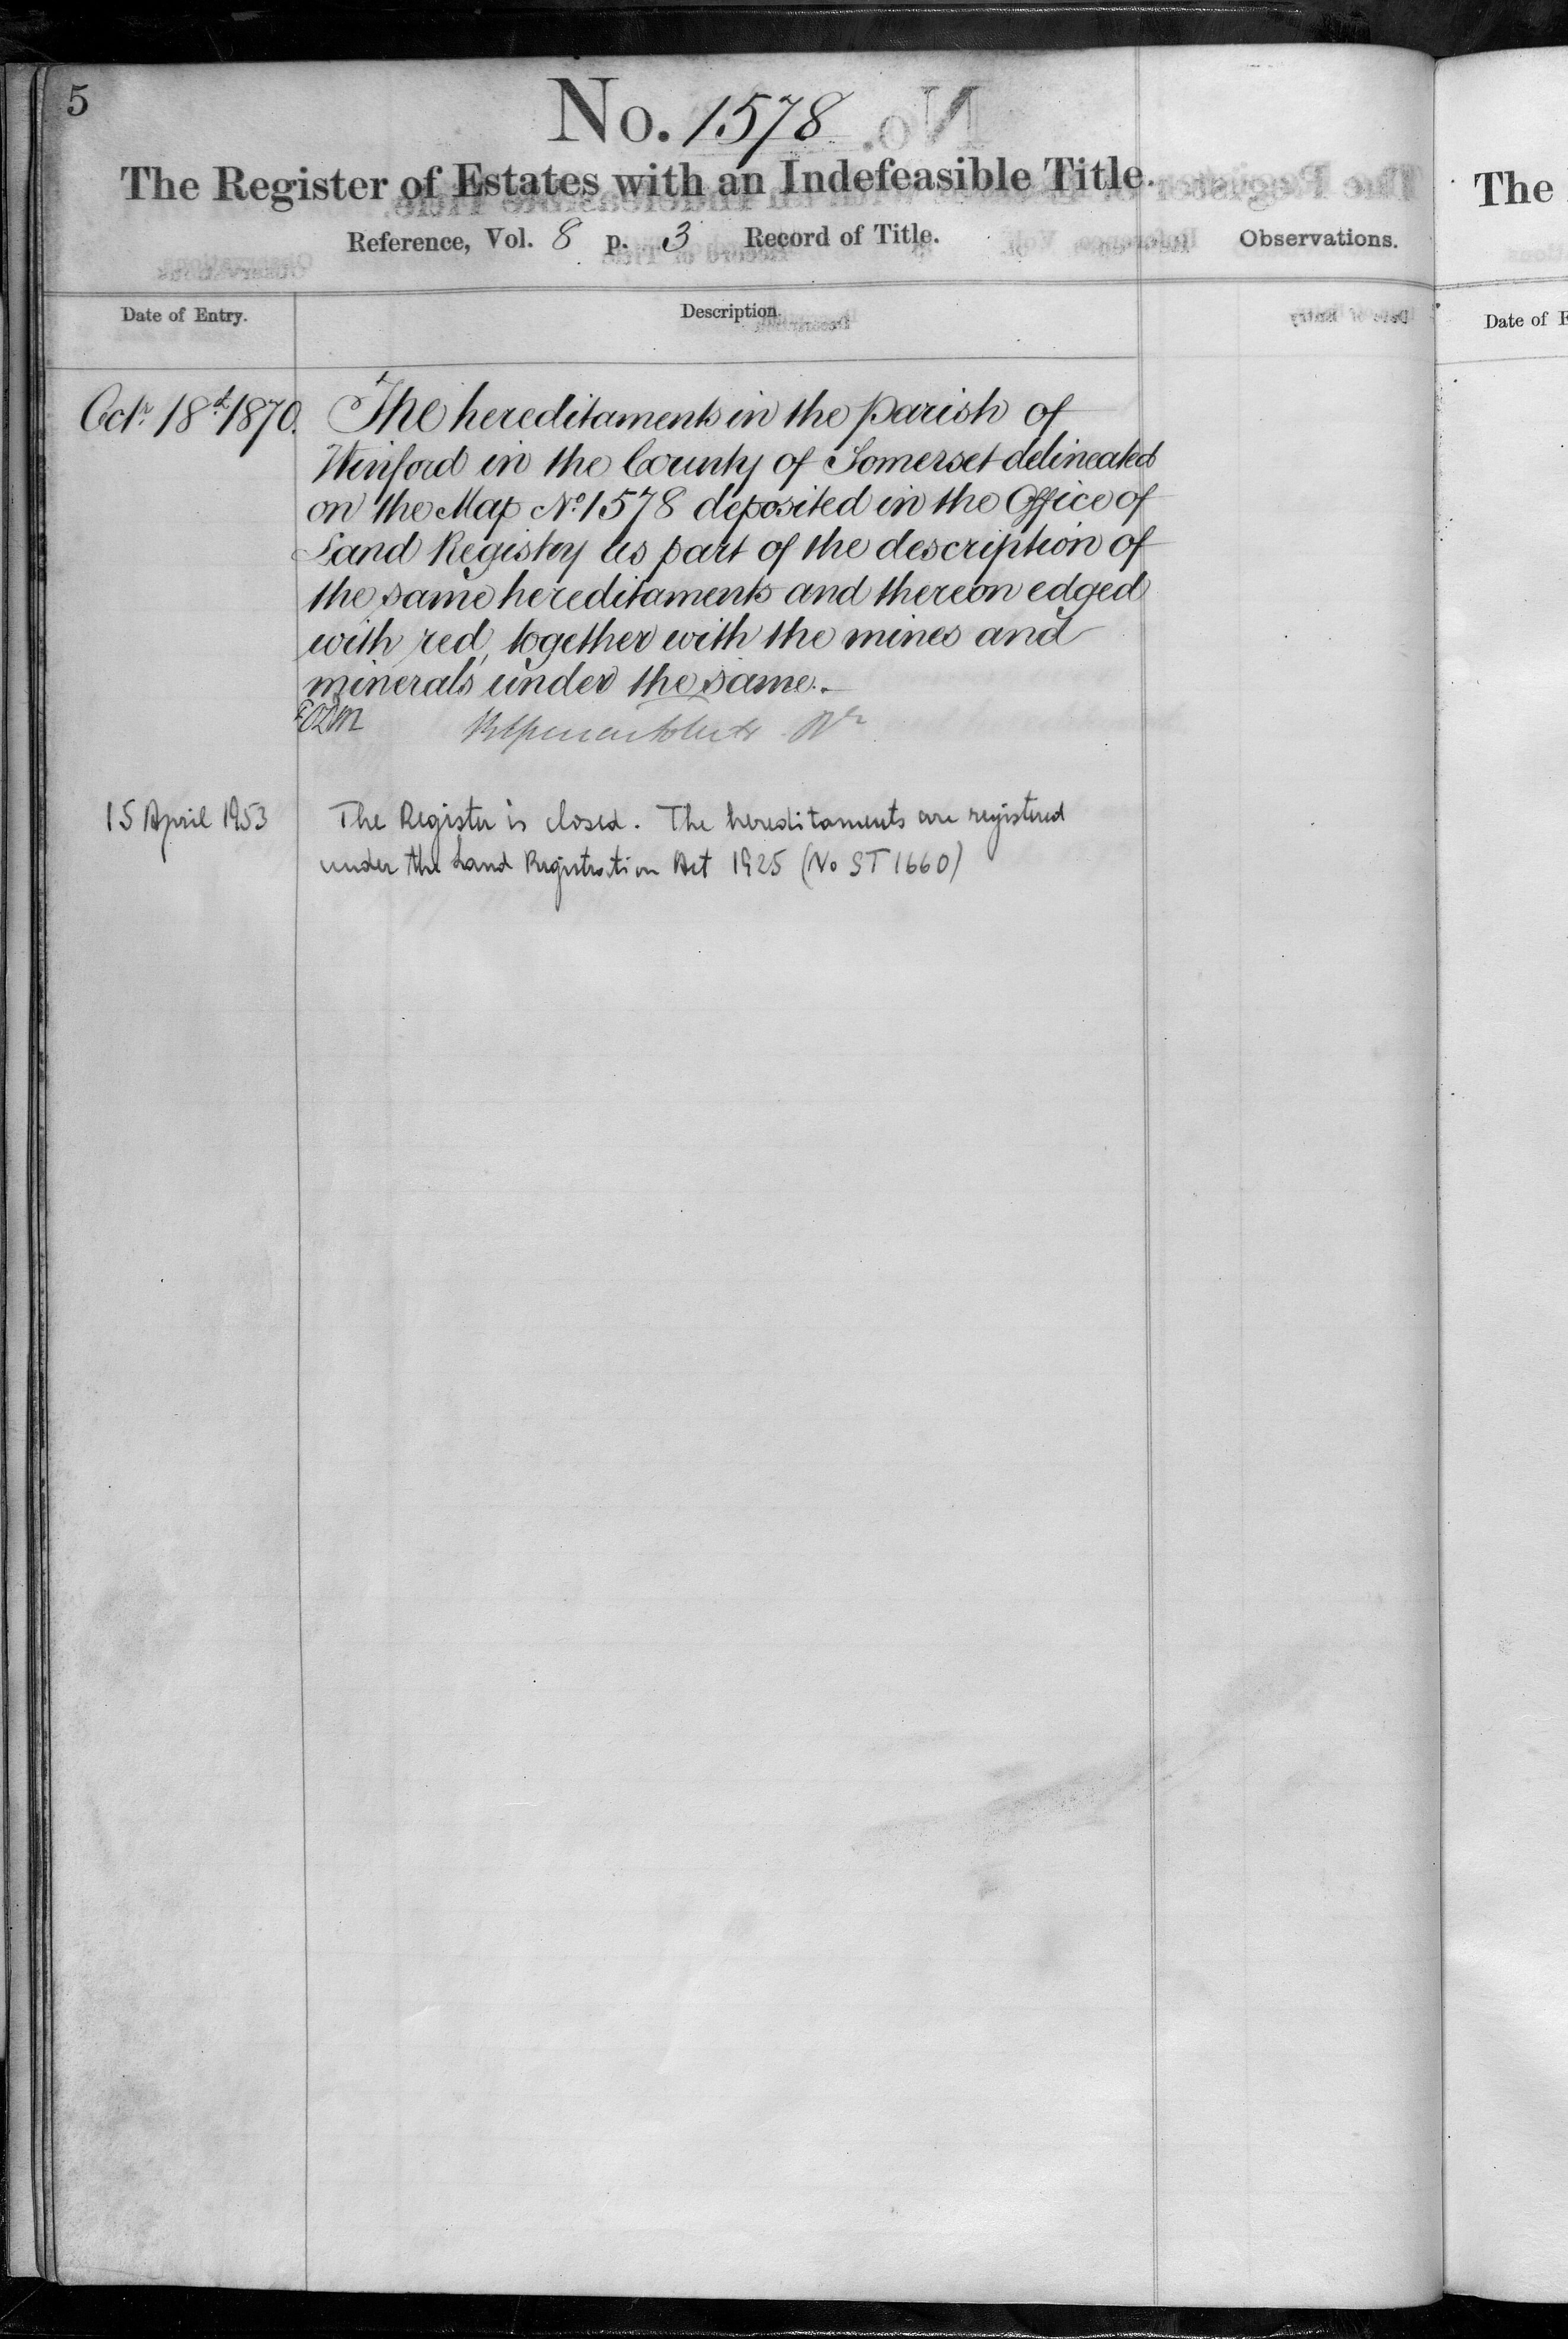 5
No. 1578
The Register of Estates with an Indefeasible Title.
Reference, Vol. 8 p. 3 Record of Title.
Observations.
Date of Entry.
Description.
Octr. 18th 1870.
The hereditaments in the parish of
Winford in the County of Somerset delineated
on the Map No 1578 deposited in the Office of
Land Registry as part of the description of
the same hereditaments and thereon edged
with red, together with the mines and
minerals under the same.
15 April 1953
The Register is closed. The hereditaments are registered
under the Land Registration Act 1925 (No ST 1660)
The
Date of E